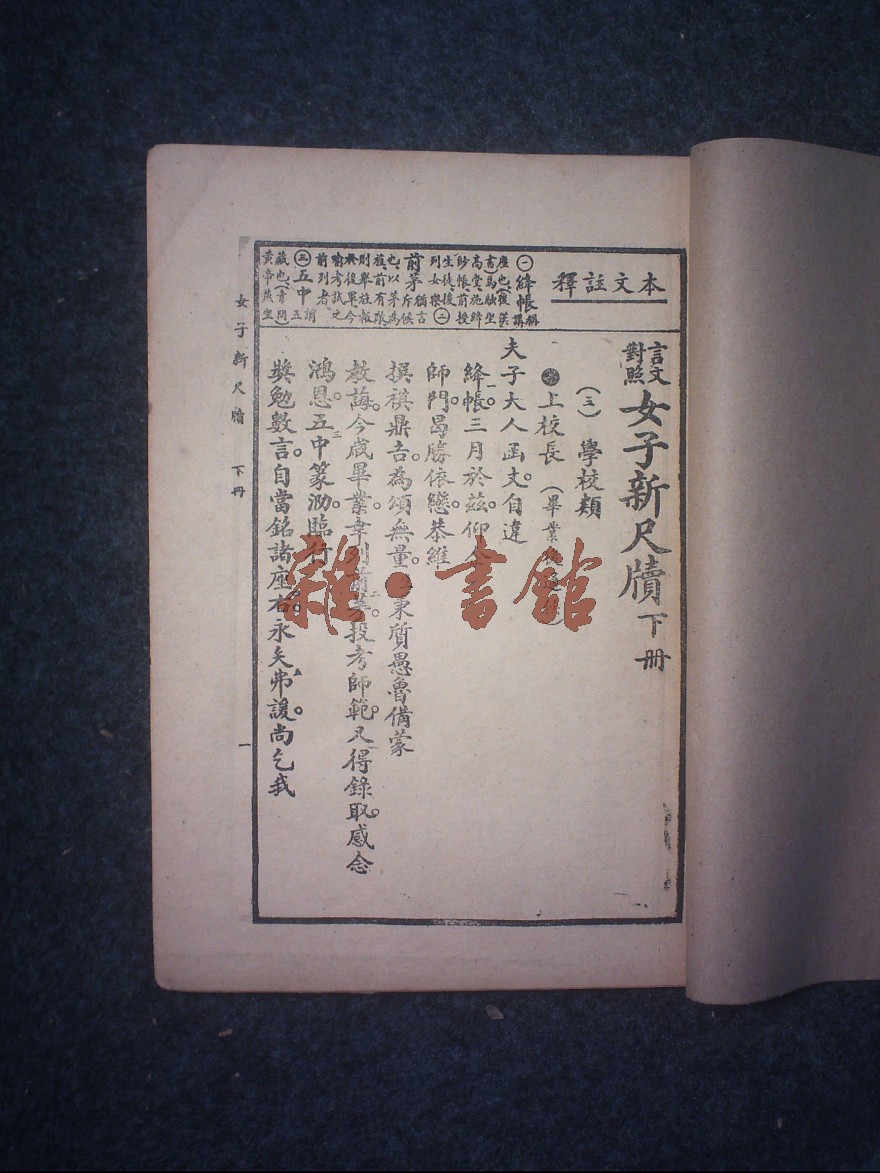 言文對照女子新尺牘下冊
(三) 學校類
上校長 (畢業後
夫子大人函丈。自違
絳帳。三月於茲。仰
師門。曷勝依戀。恭維
撰祺鼎吉。為頌無量。質愚魯。備蒙
教誨。今歲畢業。幸列前茅。投考師範。又得錄取。感念
鴻恩。五中篆泐。臨行
獎勉數言。自當銘諸座右。永矢弗諼。尚乞我
本文註釋
㊀絳帳 稱講
座也、(後漢
書)馬融坐
高堂、施絳
紗帳、前授
生徒、後
列女樂 ㊁
前茅 猶言斥候
也、以茅為
旌、前有敵、
則舉旌報
後軍、今
喻考試之
前列者
㊂五中 謂五
藏也、(素問)
黃帝燕坐
女子新尺牘 下冊
一
雜·書館